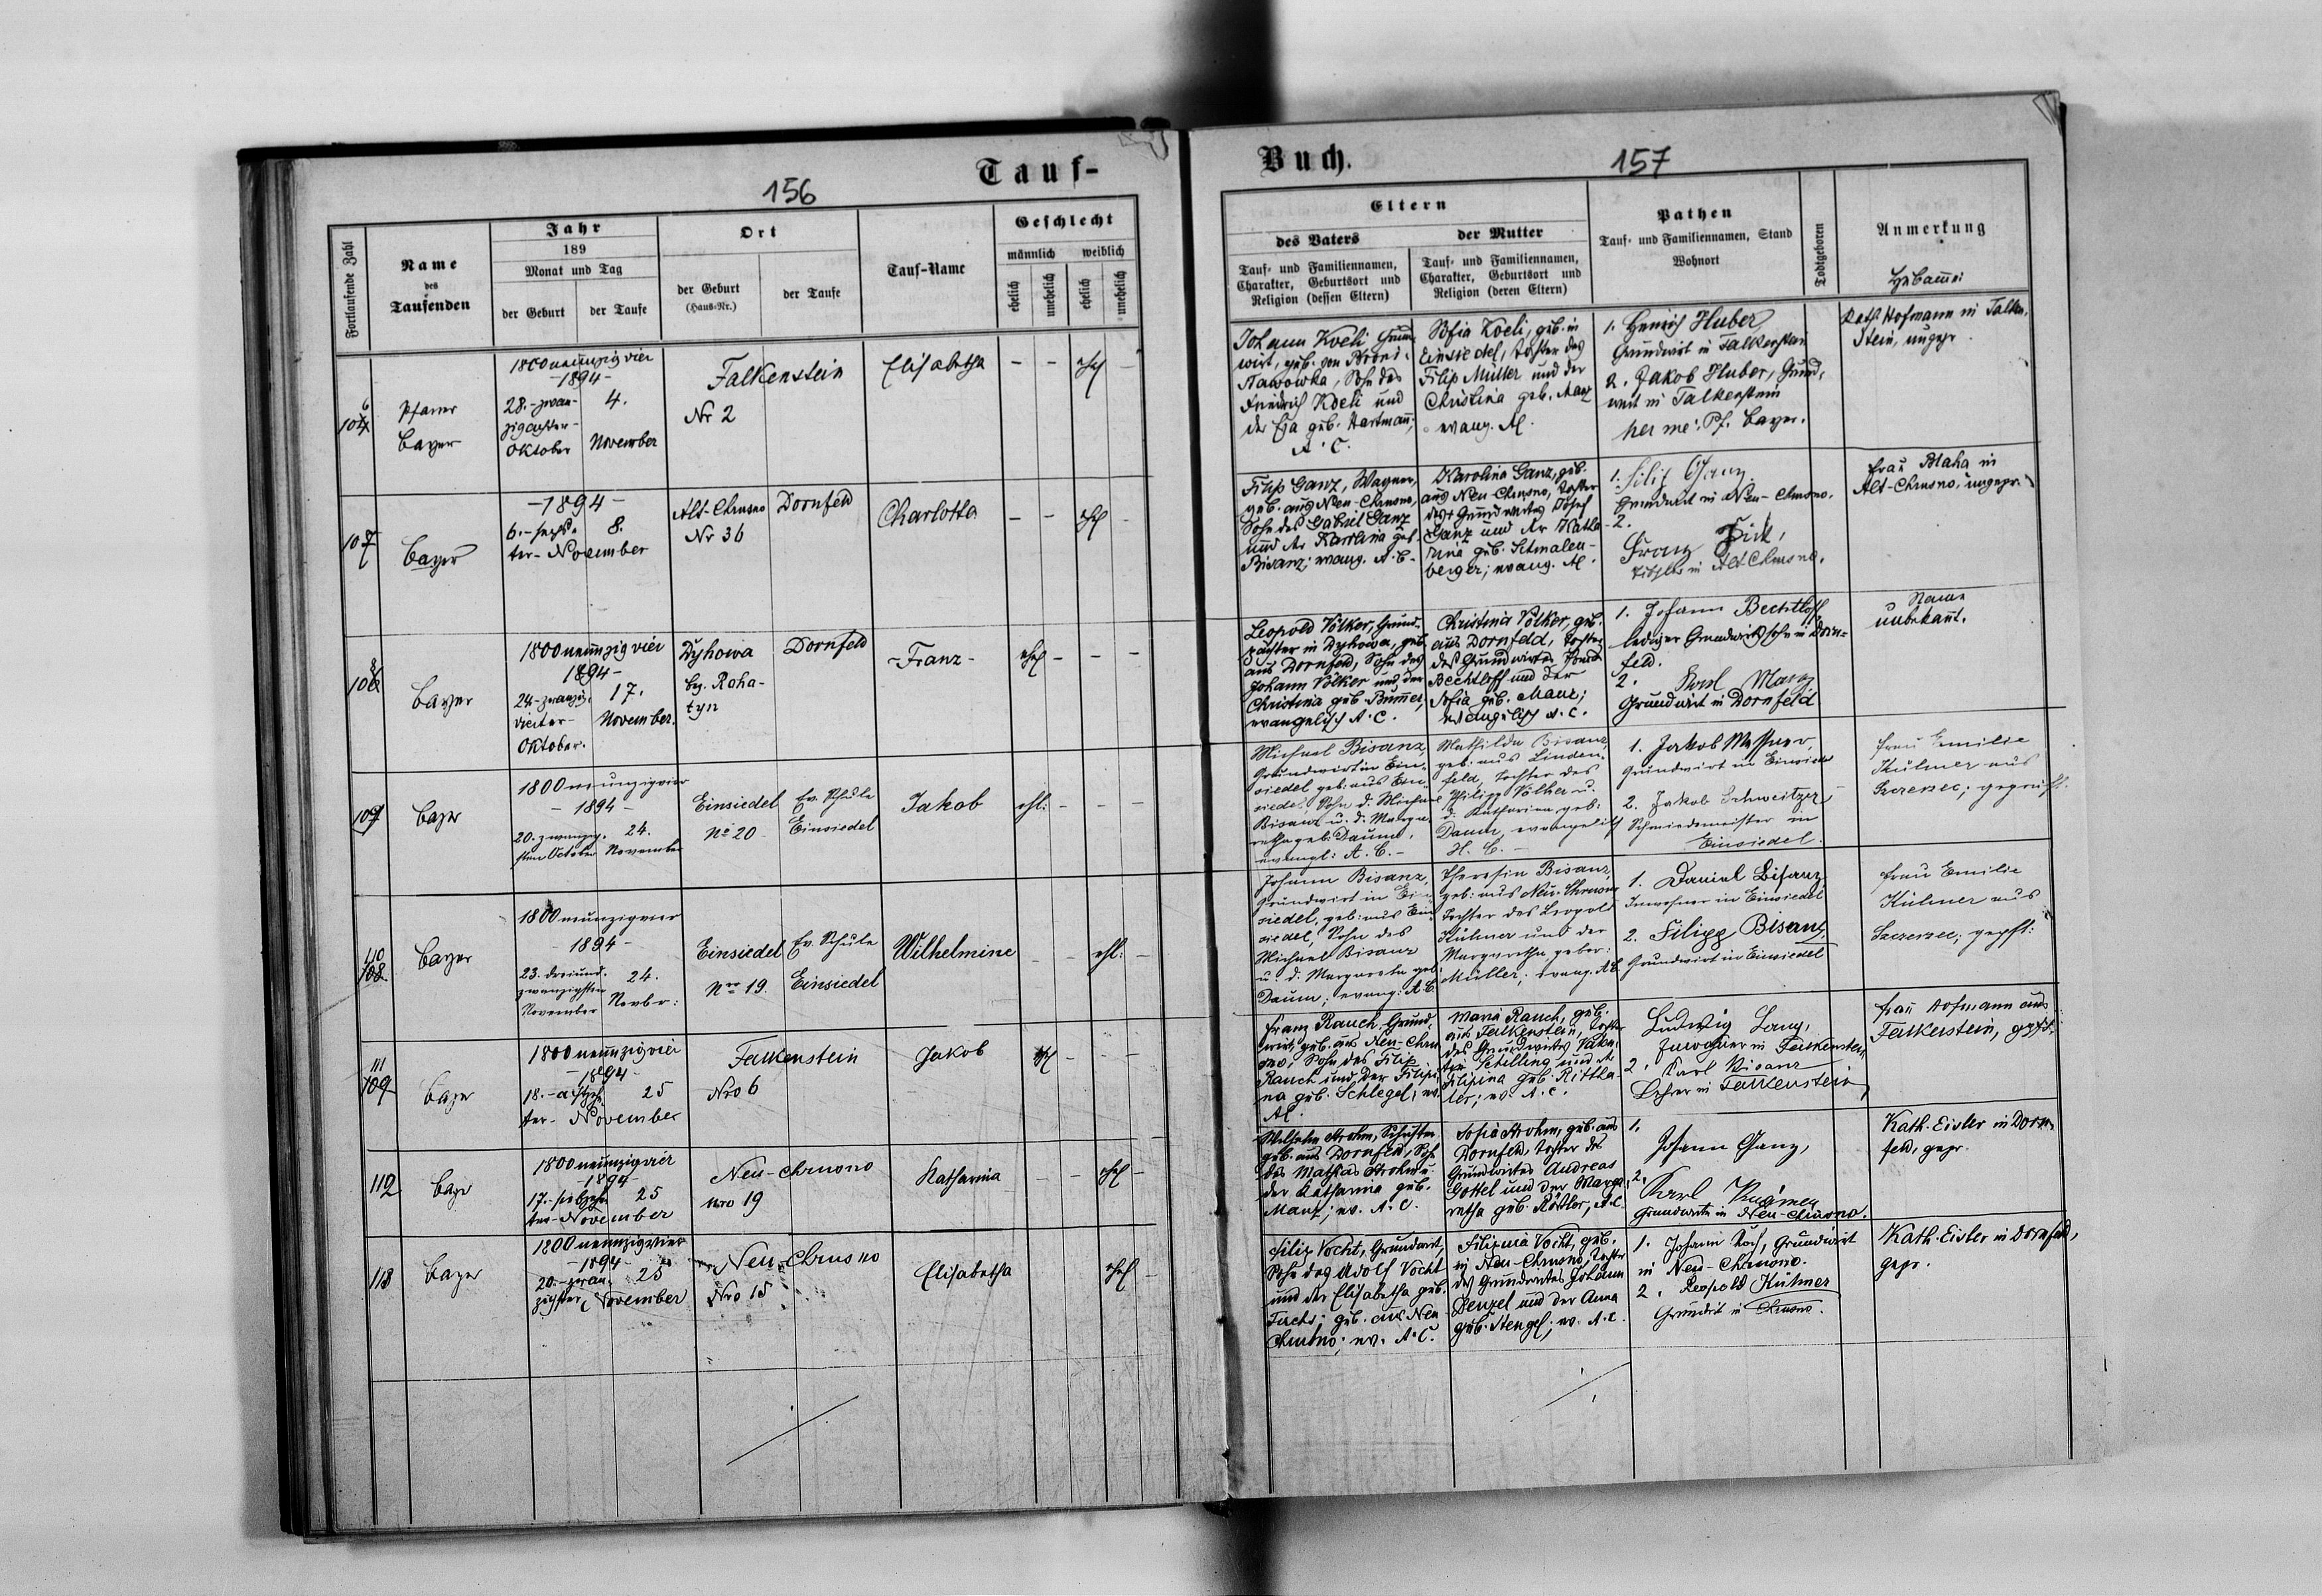 156
Tauf-
Fortlaufende Zahl
Name
des
Taufenden
Jahr
189
Monat und Tag
der Geburt
der Taufe
Ort
der Geburt
(Haus-Nr.)
der Taufe
Tauf-Name
Geschlecht
männlich
weiblich
ehelich
unehelich
ehelich
unehelich
106
Pfarrer
Bayer
1800neunzig vier
-1894-
28.-zwan-
zigachter-
Oktober
4.
November
Falkenstein
Nr 2
Elisabetha
- - ehel -
107
Bayer
-1894-
6.-sechs-
ter- November
8.
Alt-Chrusno
Nr 36
Dornfeld
Charlotta
- - ehel -
108
Bayer
1800neunzig vier
1894-
24-zwanzig-
vierter-
Oktober.
17.
November.
Dyhowa
bz. Roha-
tyn
Dornfeld
-Franz-
ehel - - -
109
Bayer
1800neunzigvier
- 1894 -
20. zwanzig-
sten October
24.
November
Einsiedel
No 20-
Ev. Schule
Einsiedel
Jakob
ehl: - - -
110
108
Bayer
1800neunzigvier
- 1894 -
23. dreiund-
zwanzigsten
November
24.
Novbr:
Einsiedel
Nro 19.
Ev. Schule
Einsiedel
Wilhelmine
- - ehl: -
111
109
Bayer
1800neunzigvier
-1894-
18.-achtzehn
ter- November
25
Falkenstein
Nro 6
Jakob
ehel - - -
112
Bayer
1800neunzigvier
-1894-
17.-siebzehn
ter-November
25
Neu-Chrusno
nro 19
Katharina
- - ehel -
113
Bayer
1800neunzigvier
-1894-
20.-zwan-
zigster November
25
Neu-Chrusno
Nro 15
Elisabetha
ehel -
Buch.
157
Eltern
des Vaters
Tauf- und Familiennamen,
Charakter, Geburtsort und
Religion (dessen Eltern)
der Mutter
Tauf- und Familiennamen,
Charakter, Geburtsort und
Religion (deren Eltern)
Pathen
Tauf- und Familiennamen, Stand
Wohnort
Todtgeboren
Anmerkung
Hebamme
Johann Koeli Grund-
wirt, geb. von Broni-
slawowka, Sohn des
Friedrich Koeli und
der Eva geb. Hartmann,
A. C.
Sofia Koeli, geb. in
Einsiedel, Tochter des
Filip Müller und der
Christina geb. Manz
evang. AC.
1. Henrich Huber
Grundwirt in Falkenstein
2. Jakob Huber, Grund-
wirt in Falkenstein
per me: Pf. Bayer.
Kath Hofmann in Falken-
stein, ungepr
Filip Ganz, Wagner,
geb. aus Neu-Chrusno,
Sohn des Gabriel Ganz
und der Karolina geb.
Bisanz; evang. A. C-
Karolina Ganz, geb.
aus Neu-Chrusno, Tochter
des Grundwirtes Josef
Ganz und der Katha-
rina geb. Schmalen-
berger; evang. AC.
1. Filip Ganz
Grundwirt in Neu-Chrusno.
2.
Franz
in Alt-Chrusno.
Frau Blaha in
Alt-Chrusno, ungepr.
Leopold Völker, Grund-
pächter in Dyhowa, geb.
aus Dornfeld, Sohn des
Johann Völker und der
Christina geb.
evangelisch A. C.
Christina Völker, geb.
aus Dornfeld, Tochter
des Grundwirtes
Bechtloff und der
Sofia geb. Manz;
evangelisch A. C.
1. Johann Bechtloff,
lediger Grundwirtssohn in Dorn-
feld.
2. Karl Manz
Grundwirt in Dornfeld
Name
unbekannt.
Michael Bisanz,
Grundwirt in Ein-
siedel geb: aus Ein-
siedel. Sohn d. Michael
Bisanz u. d. Marga-
retha geb. Daum.
evangl: A. C.-
Mathilda Bisanz,
geb: aus Linden-
feld, Tochter des
Philipp Völker u.
d. Katharina geb:
Daum, evangelisch
H. C. -
1. Jakob Messner,
Grundwirt in Einsiedel
2. Jakob Schweitzer,
Schmiedemeister in
Einsiedel.
Frau Emilie
Kühner aus
Szczerzec; geprüft.
Johann Bisanz,
Grundwirt in Ein-
siedel, geb: aus Ein-
siedel, Sohn des
Michael Bisanz
u. d. Margaretha geb.
Daum; evang: A. C.
Theresia Bisanz,
geb: aus Neu-Chrusno
Tochter des Leopold
Kühner und der
Margaretha gebor:
Müller; evang. A. C.
1. Daniel Bisanz
Inwohner in Einsiedel
2. Filipp Bisanz,
Grundwirt in Einsiedel
Frau Emilie
Kühner aus
Szczerzec; geprft:
Franz Rauch, Grund-
wirt, geb. aus Neu-Chrus
no, Sohn des Filip
Rauch und der Filipi-
na geb. Schlegel, ev.
AC.
Maria Rauch, geb.
aus Falkenstein, Tochter
des Grundwirtes Valen-
tin Schilling und der
Filipina geb. Rittha-
ler; ev. A. C.
Ludwig Lang,
Inwohner in Falkenstein
2. Karl Bisanz
Lehrer in Falkenstein
Frau Hofmann aus
Falkenstein, gepft.
Wilhelm Strohm, Schuster
geb. aus Dornfeld, Sohn
des Mathias Strohm u.
der Katharina geb.
Manz; ev. A. C.
Sofia Strohm, geb. aus
Dornfeld, Tochter des
Grundwirtes Andreas
Gottel und der Marga-
retha geb. Köstler, A.C.
1.
Johann Ganz,
2.
Karl
Grundwirte in Neu-Chrusno.
Kath. Eisler in Dorn-
feld, gepr.
Filip Vocht, Grundwirt,
Sohn des Adolf Vocht
und der Elisabetha geb.
Fuchs; geb. aus Neu
Chrusno; ev. A. C.
Filipina Vocht, geb.
in Neu-Chrusno, Tochter
des Grundwirtes Johann
Denzel und der Anna
geb. Stengel; ev. A. C.
1. Johann Koch, Grundwirt
in Neu-Chrusno.
2. Leopold Kühner
Grundwirt in Chrusno.
Kath. Eisler in Dornfeld,
gepr.